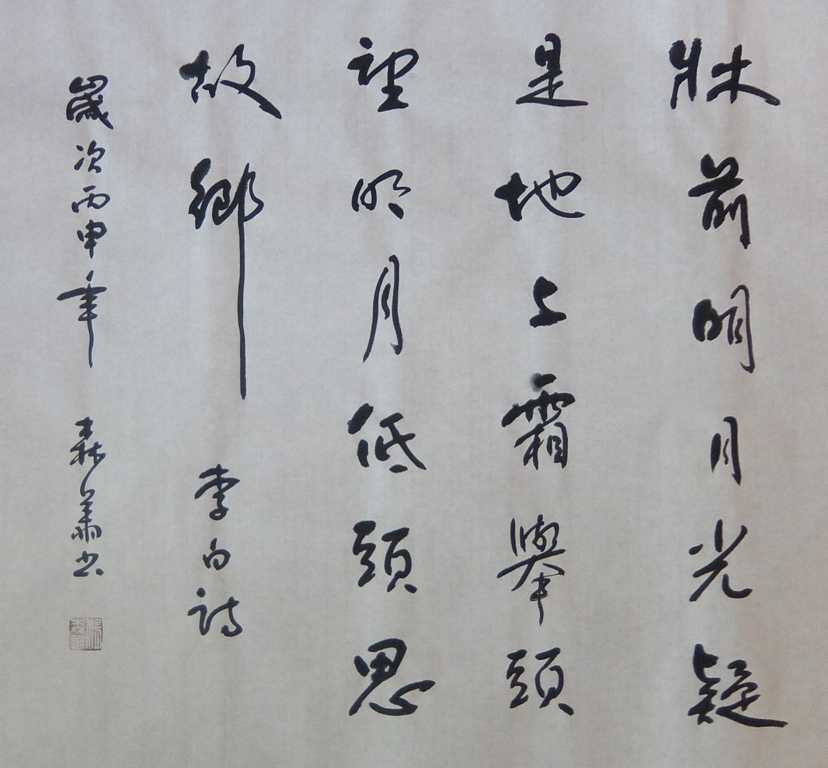 牀前明月光疑
是地上霜舉頭
望明月低頭思
故鄉 李白詩
歲次丙申年 森蕭書